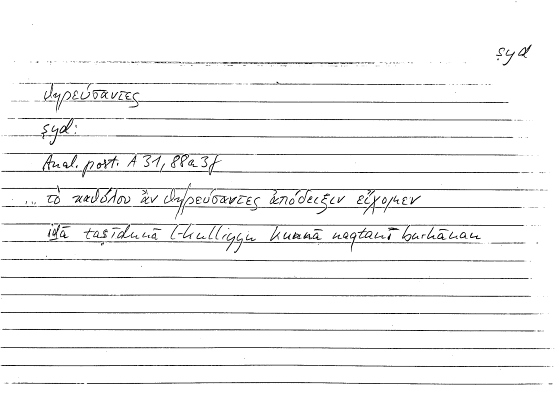 ṣyd
θηρεύσαντες
ṣyd:
Anal. post. A 31, 88a3f
... τὸ καθόλου ἂν θηρεύσαντες ἀπόδειξιν εἴχομεν
iḏā taṣīdunā l-kulliyyu kunnā naqtanī burhānan